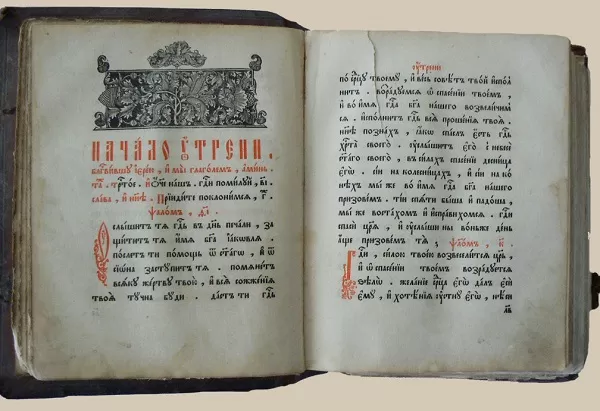 НАЧАЛО ОУ҆ТРЕНИ .
Бл҃гві́вшу і҆ере́ю , и҆ мы̀ глаго́лемъ , а҆ми́нь
та́ . трⷭ҇то́е . и҆ ѻ҆́ч҃и на́шъ . гдⷭ҇и поми́луй , ві҃ .
сла́ва , и҆ ны́нѣ . Прїиди́те поклони́мсѧ , г҃ .
ѱало́мъ , ѳ҃і .
Оу҆слы́шитъ тѧ̀ гдⷭ҇ь въ де́нь печа́ли , за
щи́титъ тѧ̀ и҆́мѧ бг҃а і҆а́ковлѧ .
по́слетъ тѝ по́мощь ѿ ст҃а́гѡ , и҆ ѿ
сїѡ́на засту́питъ тѧ̀ . помѧне́тъ
всѧ́ку же́ртву твою̀ , и҆ всѧ̀ сожже́нїѧ
твоѧ̀ ту́чна бу́ди . да́стъ тѝ гдⷭ҇ь
оу҆́трени
по срⷣцу твоему̀ , и҆ ве́сь совѣ́тъ тво́й и҆спо́л
нитъ . возра́дуемсѧ ѡ҆ спасе́нїи твое́мъ ,
и҆ во и҆́мѧ гдⷭ҇а бг҃а на́шего возвели́чим
сѧ . и҆спо́лнитъ гдⷭ҇ь всѧ̀ проше́нїѧ твоѧ̀ .
ны́нѣ позна́хъ , ꙗ҆́кѡ сп҃слъ є҆́сть гдⷭ҇ь
хрⷭ҇та̀ своего̀ . оу҆слы́шитъ є҆го̀ с небесѐ
ст҃а́го своегѡ̀ , въ си́лахъ спасе́нїе десни́ца
є҆гѡ̀ . сі́и на колесни́цахъ , и҆ сі́и на ко
не́хъ мы́ же во и҆́мѧ гдⷭ҇а бг҃а на́шего
призове́мъ . ті́и спѧ́ти бы́ша и҆ падо́ша ,
мы́ же воста́хомъ и҆ и҆спра́вихомсѧ . гдⷭ҇и
спасѝ цр҃ѧ̀ , и҆ оу҆слы́ши ны̀ во́ньже де́нь
а҆́ще призове́мъ тѧ̀ , ѱало́мъ , к҃ .
Гдⷭ҇и , си́лою твое́ю возвесели́тсѧ цр҃ь ,
и҆ ѡ҆ спасе́нїи твое́мъ возра́дуетсѧ
ѕѣлѡ̀ . жела́нїе срⷣца є҆гѡ̀ да́лъ є҆сѝ
є҆му̀ , и҆ хотѣ́нїѧ оу҆стну̀ є҆гѡ̀ , нѣ́си